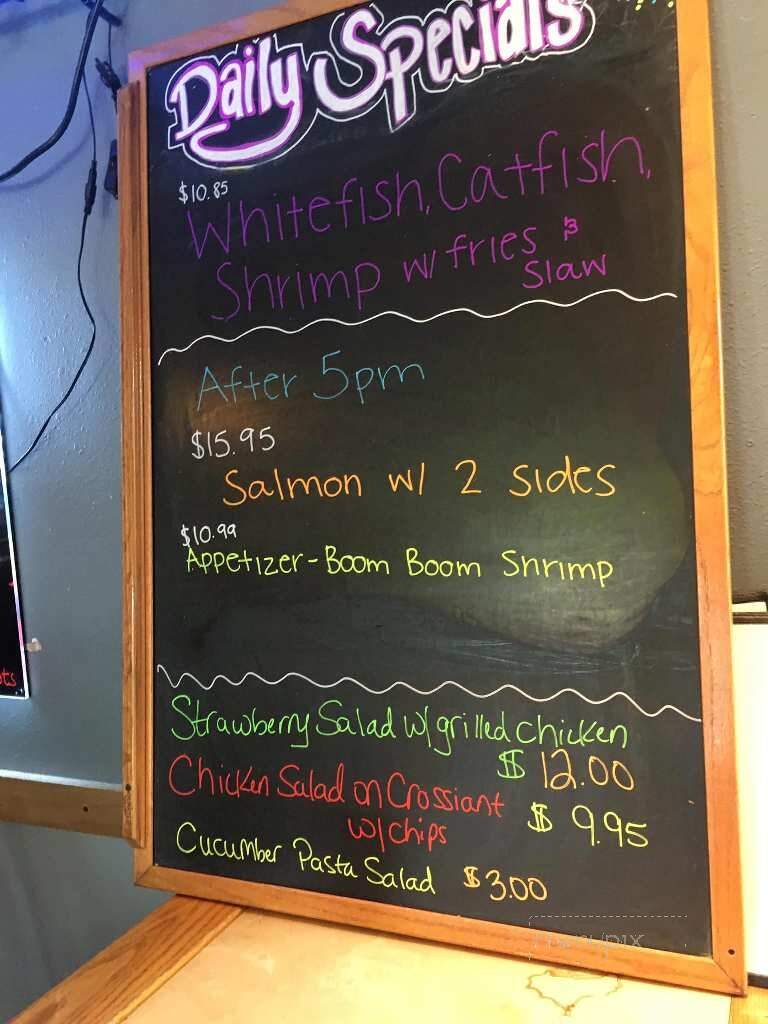 Daily Specials
$10.85
Whitefish, Catfish,
Shrimp w/ fries &
Slaw
After 5pm
$15.95
Salmon w/ 2 sides
$10.99
Appetizer - Boom Boom Shrimp
Strawberry Salad w/ grilled chicken
$12.00
Chicken Salad on Crossiant
w/ chips $9.95
Cucumber Pasta Salad $3.00